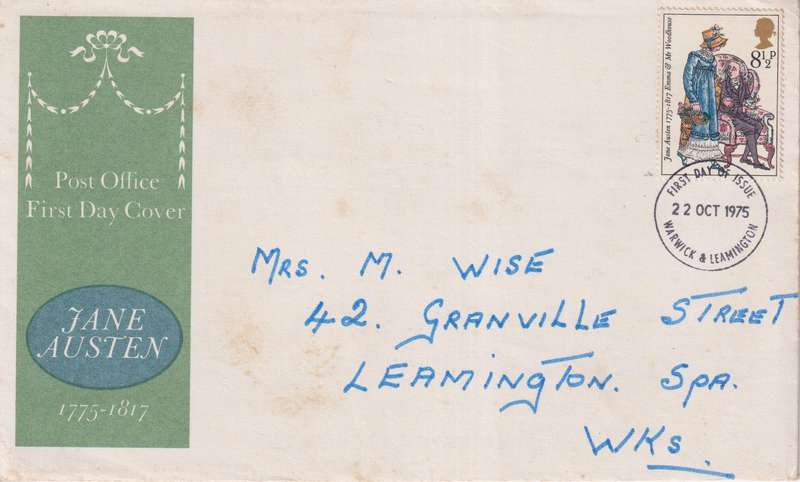 Post Office
First Day Cover
JANE
AUSTEN
1775-1817
Jane Austen 1775-1817 Emma & Mr Woodhouse
8½P
FIRST DAY OF ISSUE
22 OCT 1975
WARWICK & LEAMINGTON
MRS. M. WISE
42. GRANVILLE STREET
LEAMINGTON. SPA.
WKS.